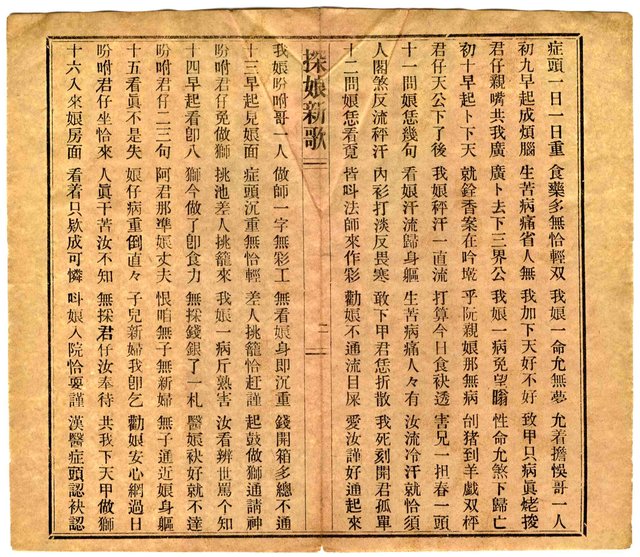 症頭一日一日重 食藥多無恰輕双 我娘一命允無夢 允着擔悞哥一人
初九早起成煩腦 生苦病痛省人無 我加下天好不好 致甲只病眞姥接
君仔親嘴共我廣 廣卜去下三界公 我娘一病免望暡 性命允煞下歸亡
初十早起卜下天 就銓香案在吟墘 乎阮親娘那無病 刣猪到羊戯双枰
君仔天公下了後 我娘秤汗一直流 打算今日食袂透 害兄一担春一頭
十一問娘恁幾句 看娘汗流歸身軀 生苦病痛人々有 汝流冷汗就恰須
人閣煞反流秤汗 內衫打淡反畏寒 敢下甲君恁折散 我死刻開君孤單
十二問娘恁看覓 皆呌法師來作彩 勸娘不通流目屎 愛汝謹好通起來
探娘新歌 二
我娘吩咐哥一人 做師一字無彩工 無看娘身即沉重 錢開箱多總不通
十三早起見娘面 症頭沉重無恰輕 差人挑籠恰赶謹 起鼓做獅通請神
吩咐君仔免做獅 挑池差人挑籠來 我娘一病斤熟害 汝看辨世罵个知
十四早起看卽八 獅今做了卽食力 無採錢銀了一札 醫娘袂好就不達
吩咐君仔二三句 阿君那準娘丈夫 恨咱無子無新婦 無子通近娘身軀
十五看眞不是失 娘仔病重倒直々 子兒新婦我卽乞 勸娘安心網過日
吩咐君仔坐恰來 人眞干苦汝不知 無採君仔汝奉待 共我下天甲做獅
十六入來娘房面 看着只欵成可憐 呌娘入院恰要謹 漢醫症頭認袂認